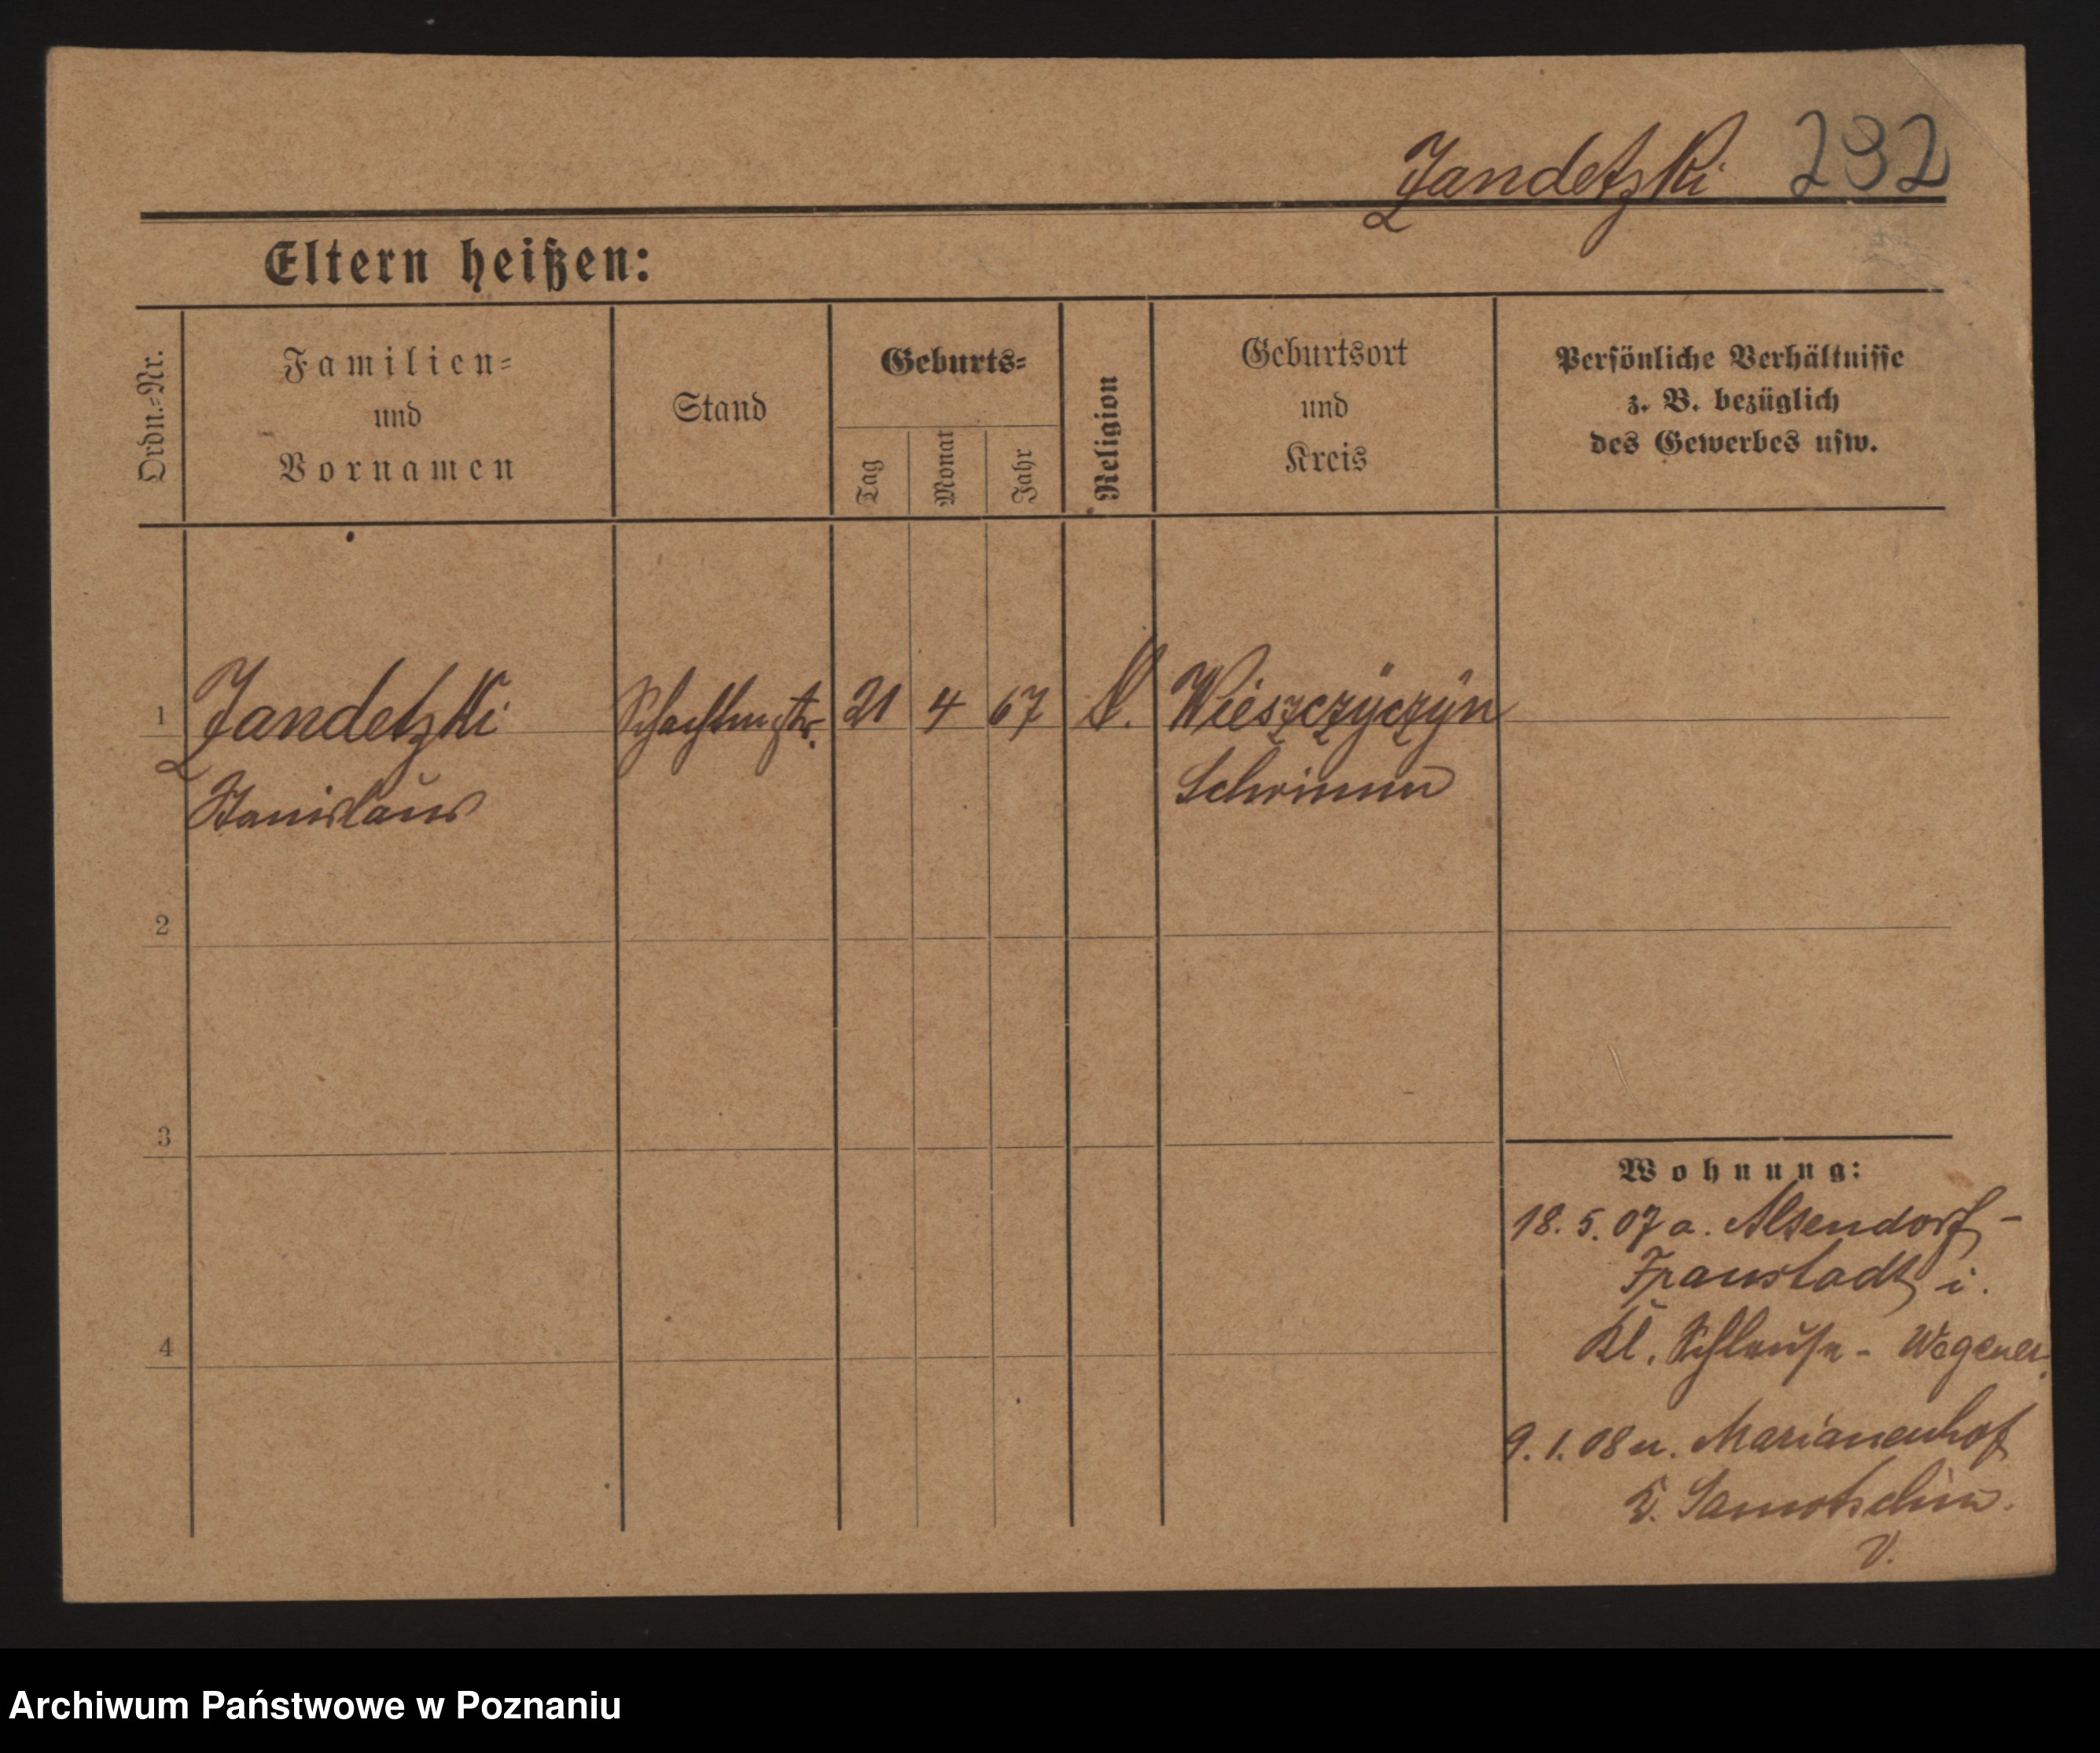 Jandetzki 292
Eltern heißen:
Ordn.=Nr.
Familien=
und
Vornamen
Stand
Geburts=
Tag
Monat
Jahr
Religion
Geburtsort
und
Kreis
Persönliche Verhältnisse
z. B. bezüglich
des Gewerbes usw.
1 Jandetzki Schachtmstr. 21 4 67 Wieszczyczyn
Stanislaus Schrimm
2
3
4
Wohnung:
18. 5. 07 a. Alsendorf -
Fraustadt i.
Kl. Schleuse - Wegener
9. 1. 08 n. Marianenhof
b. Samotschin.
V.
Archiwum Państwowe w Poznaniu